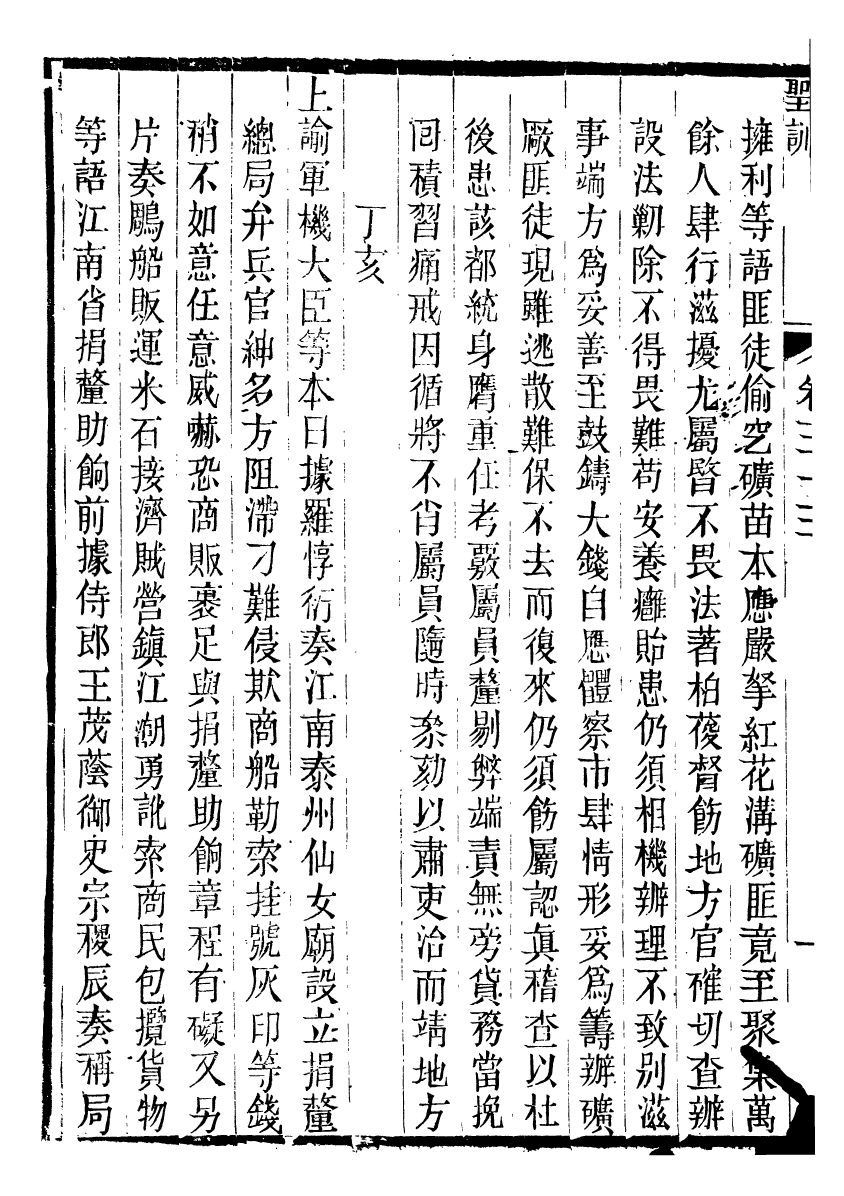 聖訓
卷三十三
擁利等語匪徒偷挖礦苗本應嚴拏紅花溝礦匪竟至聚集萬
餘人肆行滋擾尤屬暋不畏法著柏葰督飭地方官確切查辦
設法剿除不得畏難苟安養癰貽患仍須相機辦理不致別滋
事端方爲妥善至鼓鑄大錢自應體察市肆情形妥爲籌辦礦
厰匪徒現雖逃散難保不去而復來仍須飭屬認眞稽查以杜
後患該都統身膺重任考覈屬員釐剔弊端責無旁貸務當挽
囘積習痛戒因循將不肖屬員隨時叅劾以肅吏治而靖地方
丁亥
上諭軍機大臣等本日據羅惇衍奏江南泰州仙女廟設立捐釐
總局弁兵官紳多方阻滯刁難侵欺商船勒索挂號灰印等錢
稍不如意任意威嚇恐商販裹足與捐釐助餉章程有礙又另
片奏鷗船販運米石接濟賊營鎭江潮勇訛索商民包攬貨物
等語江南省捐釐助餉前據侍郎王茂蔭御史宗稷辰奏稱局